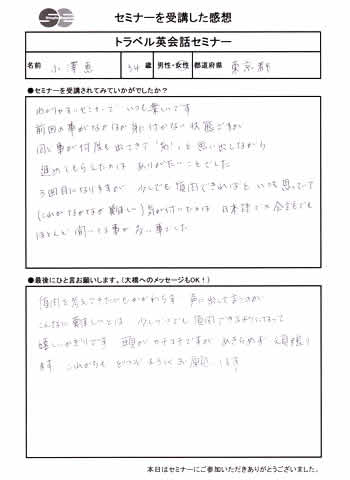 セミナーを受講した感想
トラベル英会話セミナー
名前 小澤 恵 34 歳 男性・女性 都道府県 東京都
●セミナーを受講されてみていかがでしたか?
わかりやすいセミナーで いつも楽しいです
前回の事がなかなか身に付かない状態ですが
同じ事が何度も出てきて「あ!」と思い出しながら
進めてもらえたのは ありがたいことでした
3回目になりますが 少しでも質問できればと いつも思っていて
(これがなかなか難しい) 気が付いたのは 日本語での会話でも
ほとんど 聞いてる事が ない事でした
●最後にひと言お願いします。(大橋へのメッセージもOK!)
質問を考えてきたにもかかわらず 声に出して言うのが
こんなに難しいとは 少しづつでも質問できるようになって
嬉しいかぎりです 頭が カチコチですが あきらめず 頑張り
ます これからも どうぞよろしくお願いします!
本日はセミナーにご参加いただきありがとうございました。